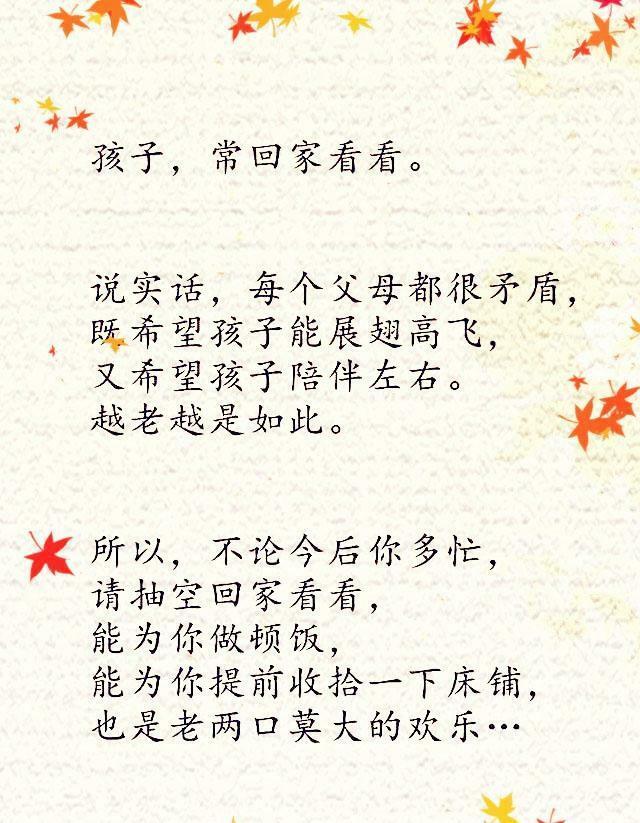 孩子，常回家看看。
说实话，每个父母都很矛盾，
既希望孩子能展翅高飞，
又希望孩子陪伴左右。
越老越是如此。
所以，不论今后你多忙，
请抽空回家看看，
能为你做顿饭，
能为你提前收拾一下床铺，
也是老两口莫大的欢乐…